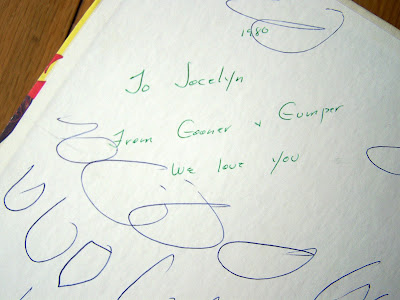 1980
To Jocelyn
From Gooner & Gumper
We love you